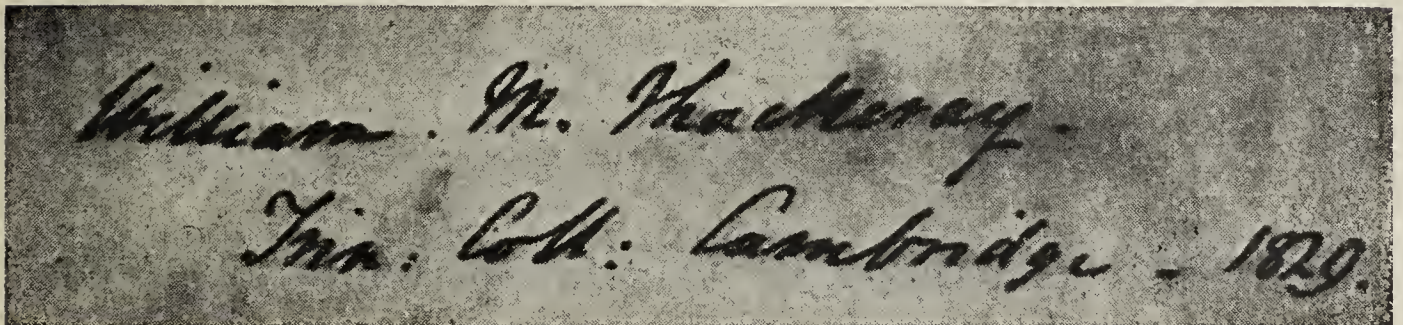 William. M. Thackeray -
Trin: Coll: Cambridge - 1829.